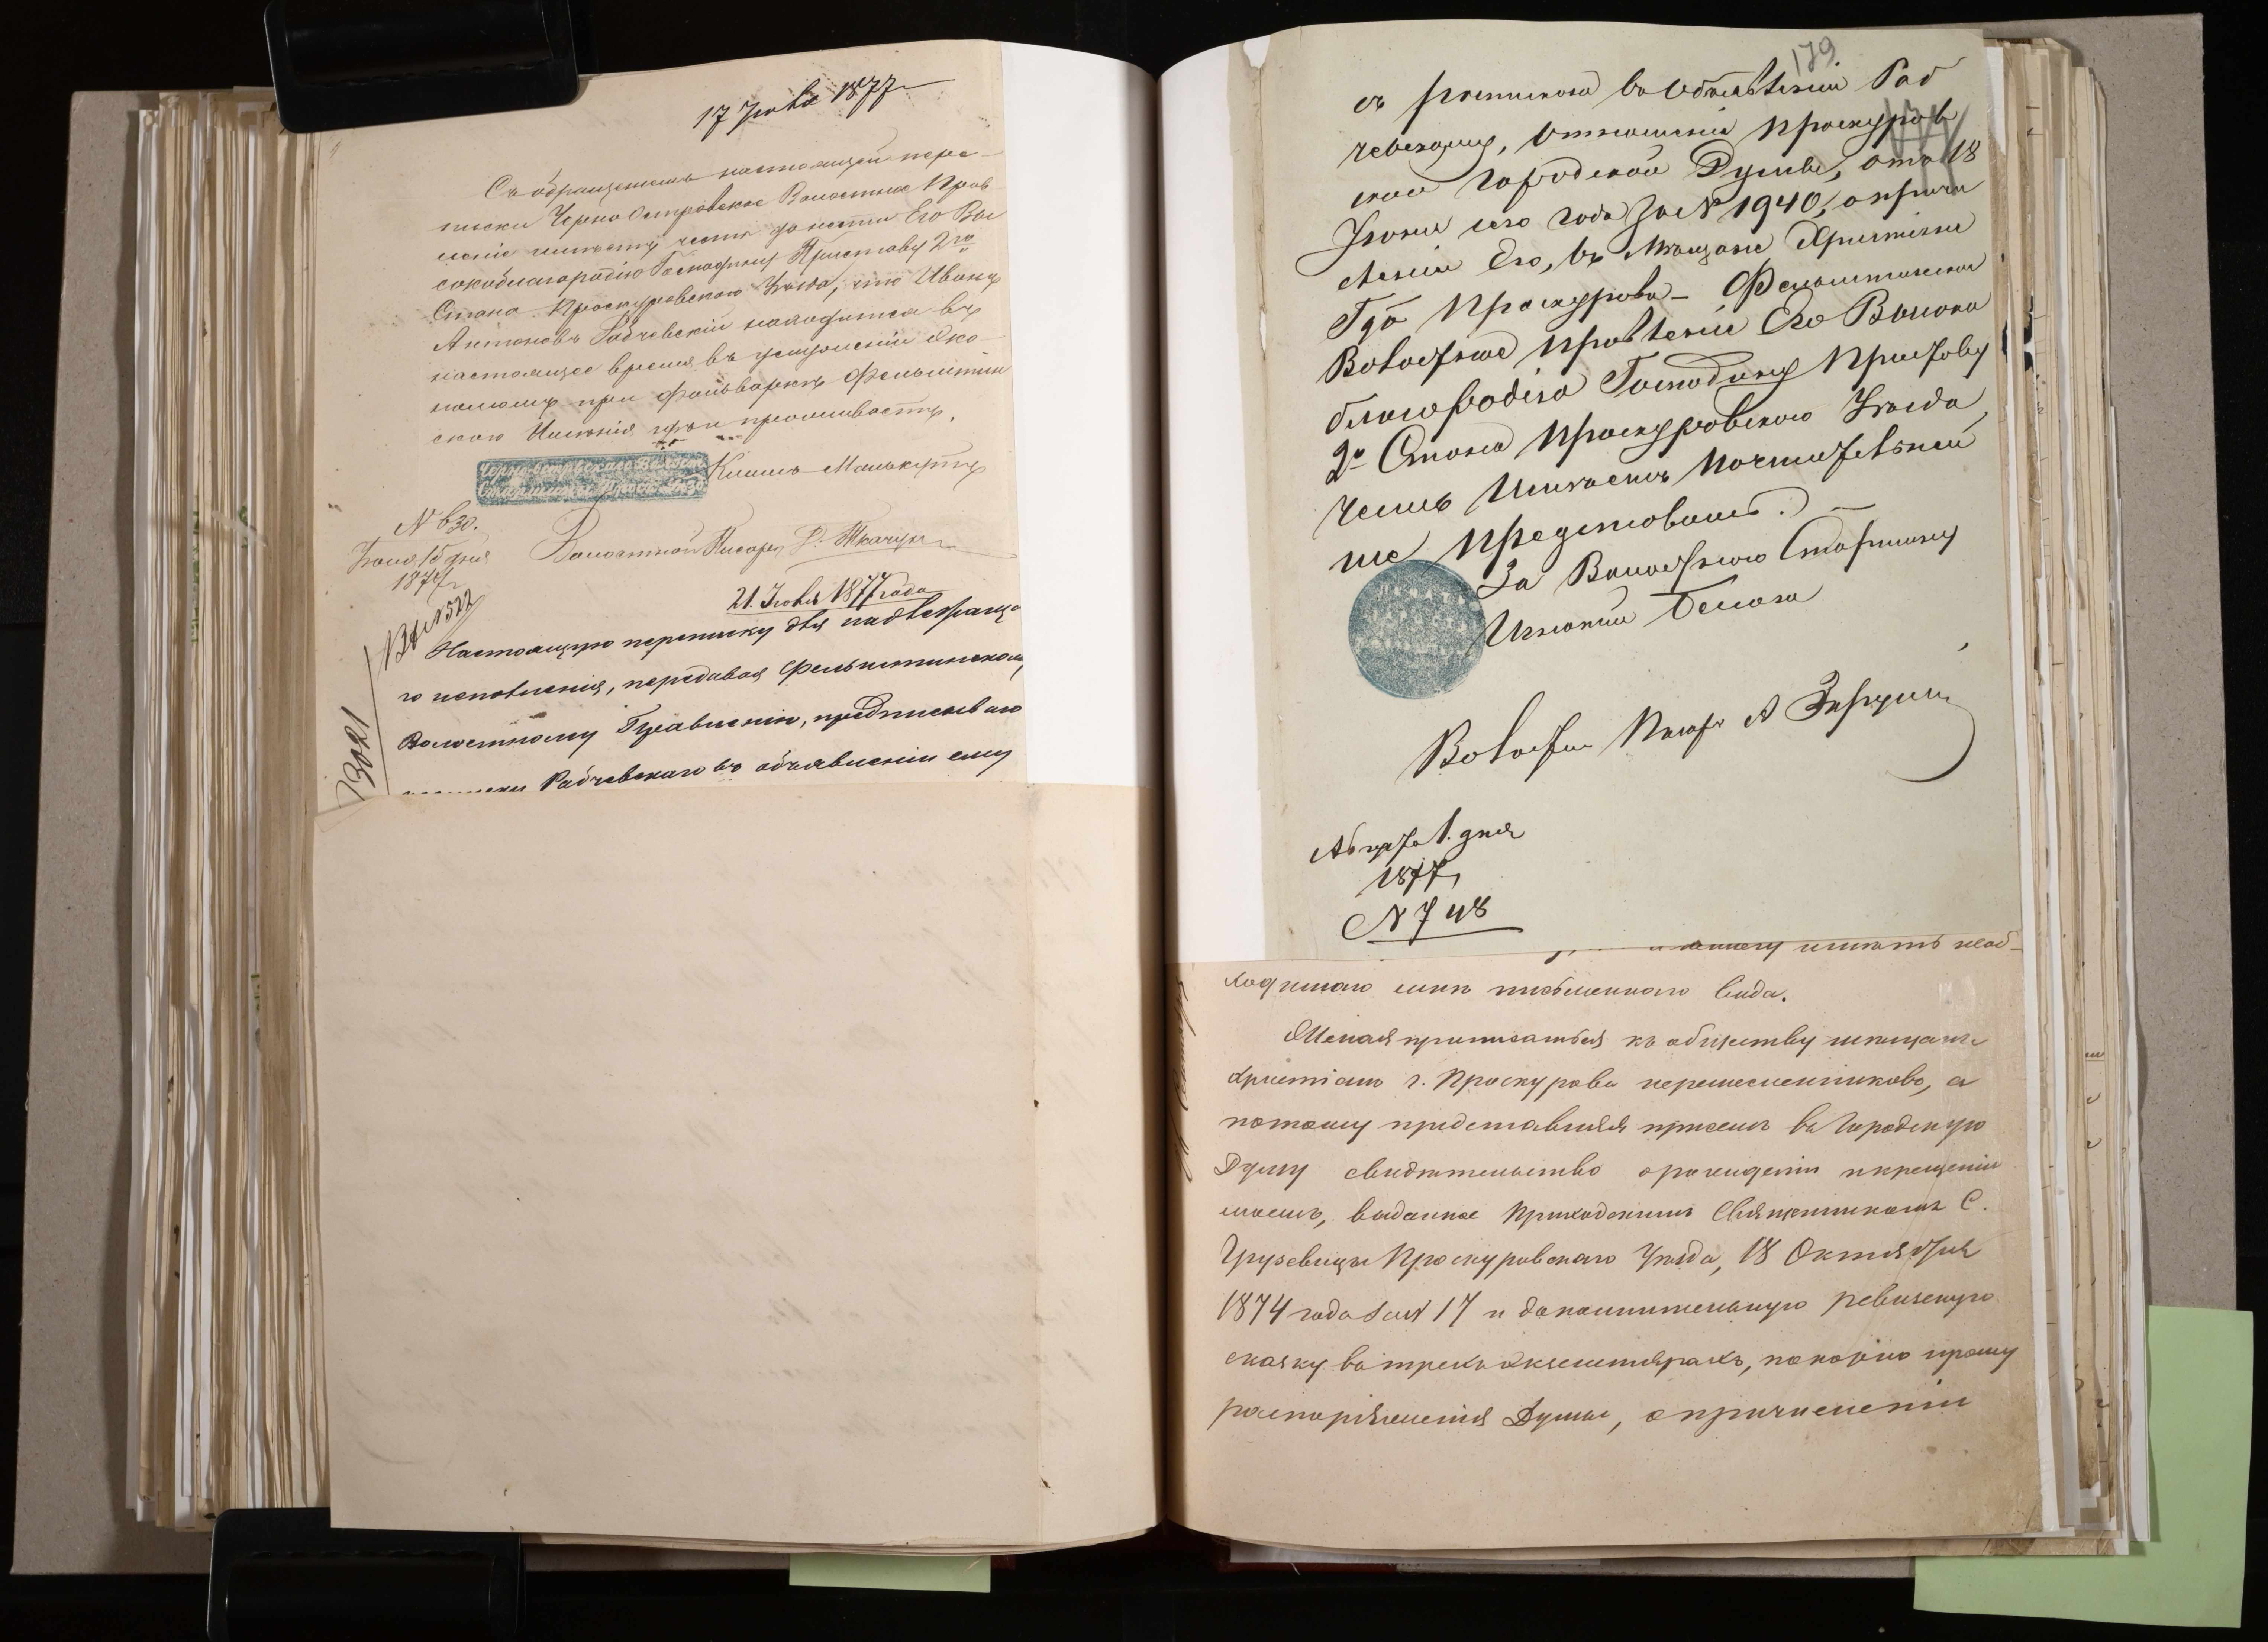 17 Іюня 1877
Съ обращеніемъ настоящей пере-
писки Черно Островское Волостное Прав
леніе имѣетъ честь донести Его Вы
сокоблагородію Господину Приставу 2го
Стана Проскуровскаго Уѣзда, что Иванъ
Антоновъ Рабчевскій находится въ
настоящее время въ услуженіи Эко
номомъ при фольваркѣ Фельштин
скаго Имѣнія гдѣ и проживаетъ.
Черно-островскаго Волост.
Старшины Проск. Уѣзд
N 630.
Іюня 15 дня
1877
Волостной Писарь
21. Іюня 1877 года
N 522
Настоящую переписку для надлежаща
го исполненія, передавая Фельштинскому
Волостному Правленію, предписываю
Рабчевскаго въ объявленіи ему
3021
179
съ роспискою въ объявленіи Раб
чевскому, отношенія Проскуров
ской Городской Думы, отъ 18
Іюня сего года за N 1940, о причи
сленіи Его, въ Мѣщане Христіяне
Гда Проскурова — Фельштинское
Волостное Правленіе Его Высоко
благородію Господину Приставу
2го Стана Проскуровскаго Уѣзда,
честь Имѣетъ Почтительней
ше представить.
За Волостного Старшину
Волостн Писарь А
Августа 1. дня
1877
N 748
имѣть необ-
ходимаго мнѣ письменнаго вида.
Желая приписаться къ обществу мѣщанъ
христіанъ г. Проскурова неремесленниковъ, а
потому представляя присемъ въ Городскую
Думу свидѣтельство о рожденіи и крещеніи
моемъ, выданное Приходскимъ Священникомъ С.
Грузевицы Проскуровскаго Уѣзда, 18 Октября
1874 года за N 17 и дополнительную ревизскую
сказку въ трехъ экземплярахъ, покорно прошу
распоряженія Думы, о причисленіи